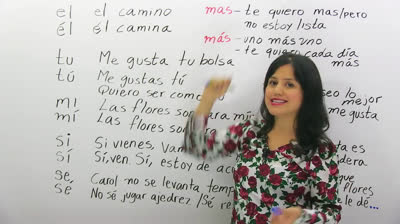 el el camino
él Él camina
tu Me gusta tu bolsa
tú Me gustas tú
Quiero ser como
mi Las flores son para mi
mí Las flores son
si Si vienes, vam
sí Sí, ven. Sí, estoy de ac
se Carol no se levanta temp
sé No sé jugar ajedrez/Sé re
mas – te quiero mas/pero
no estoy lista
más – uno más uno
– te quiero cada día
más
lo mejor
me gusta
es
flores
le dé...